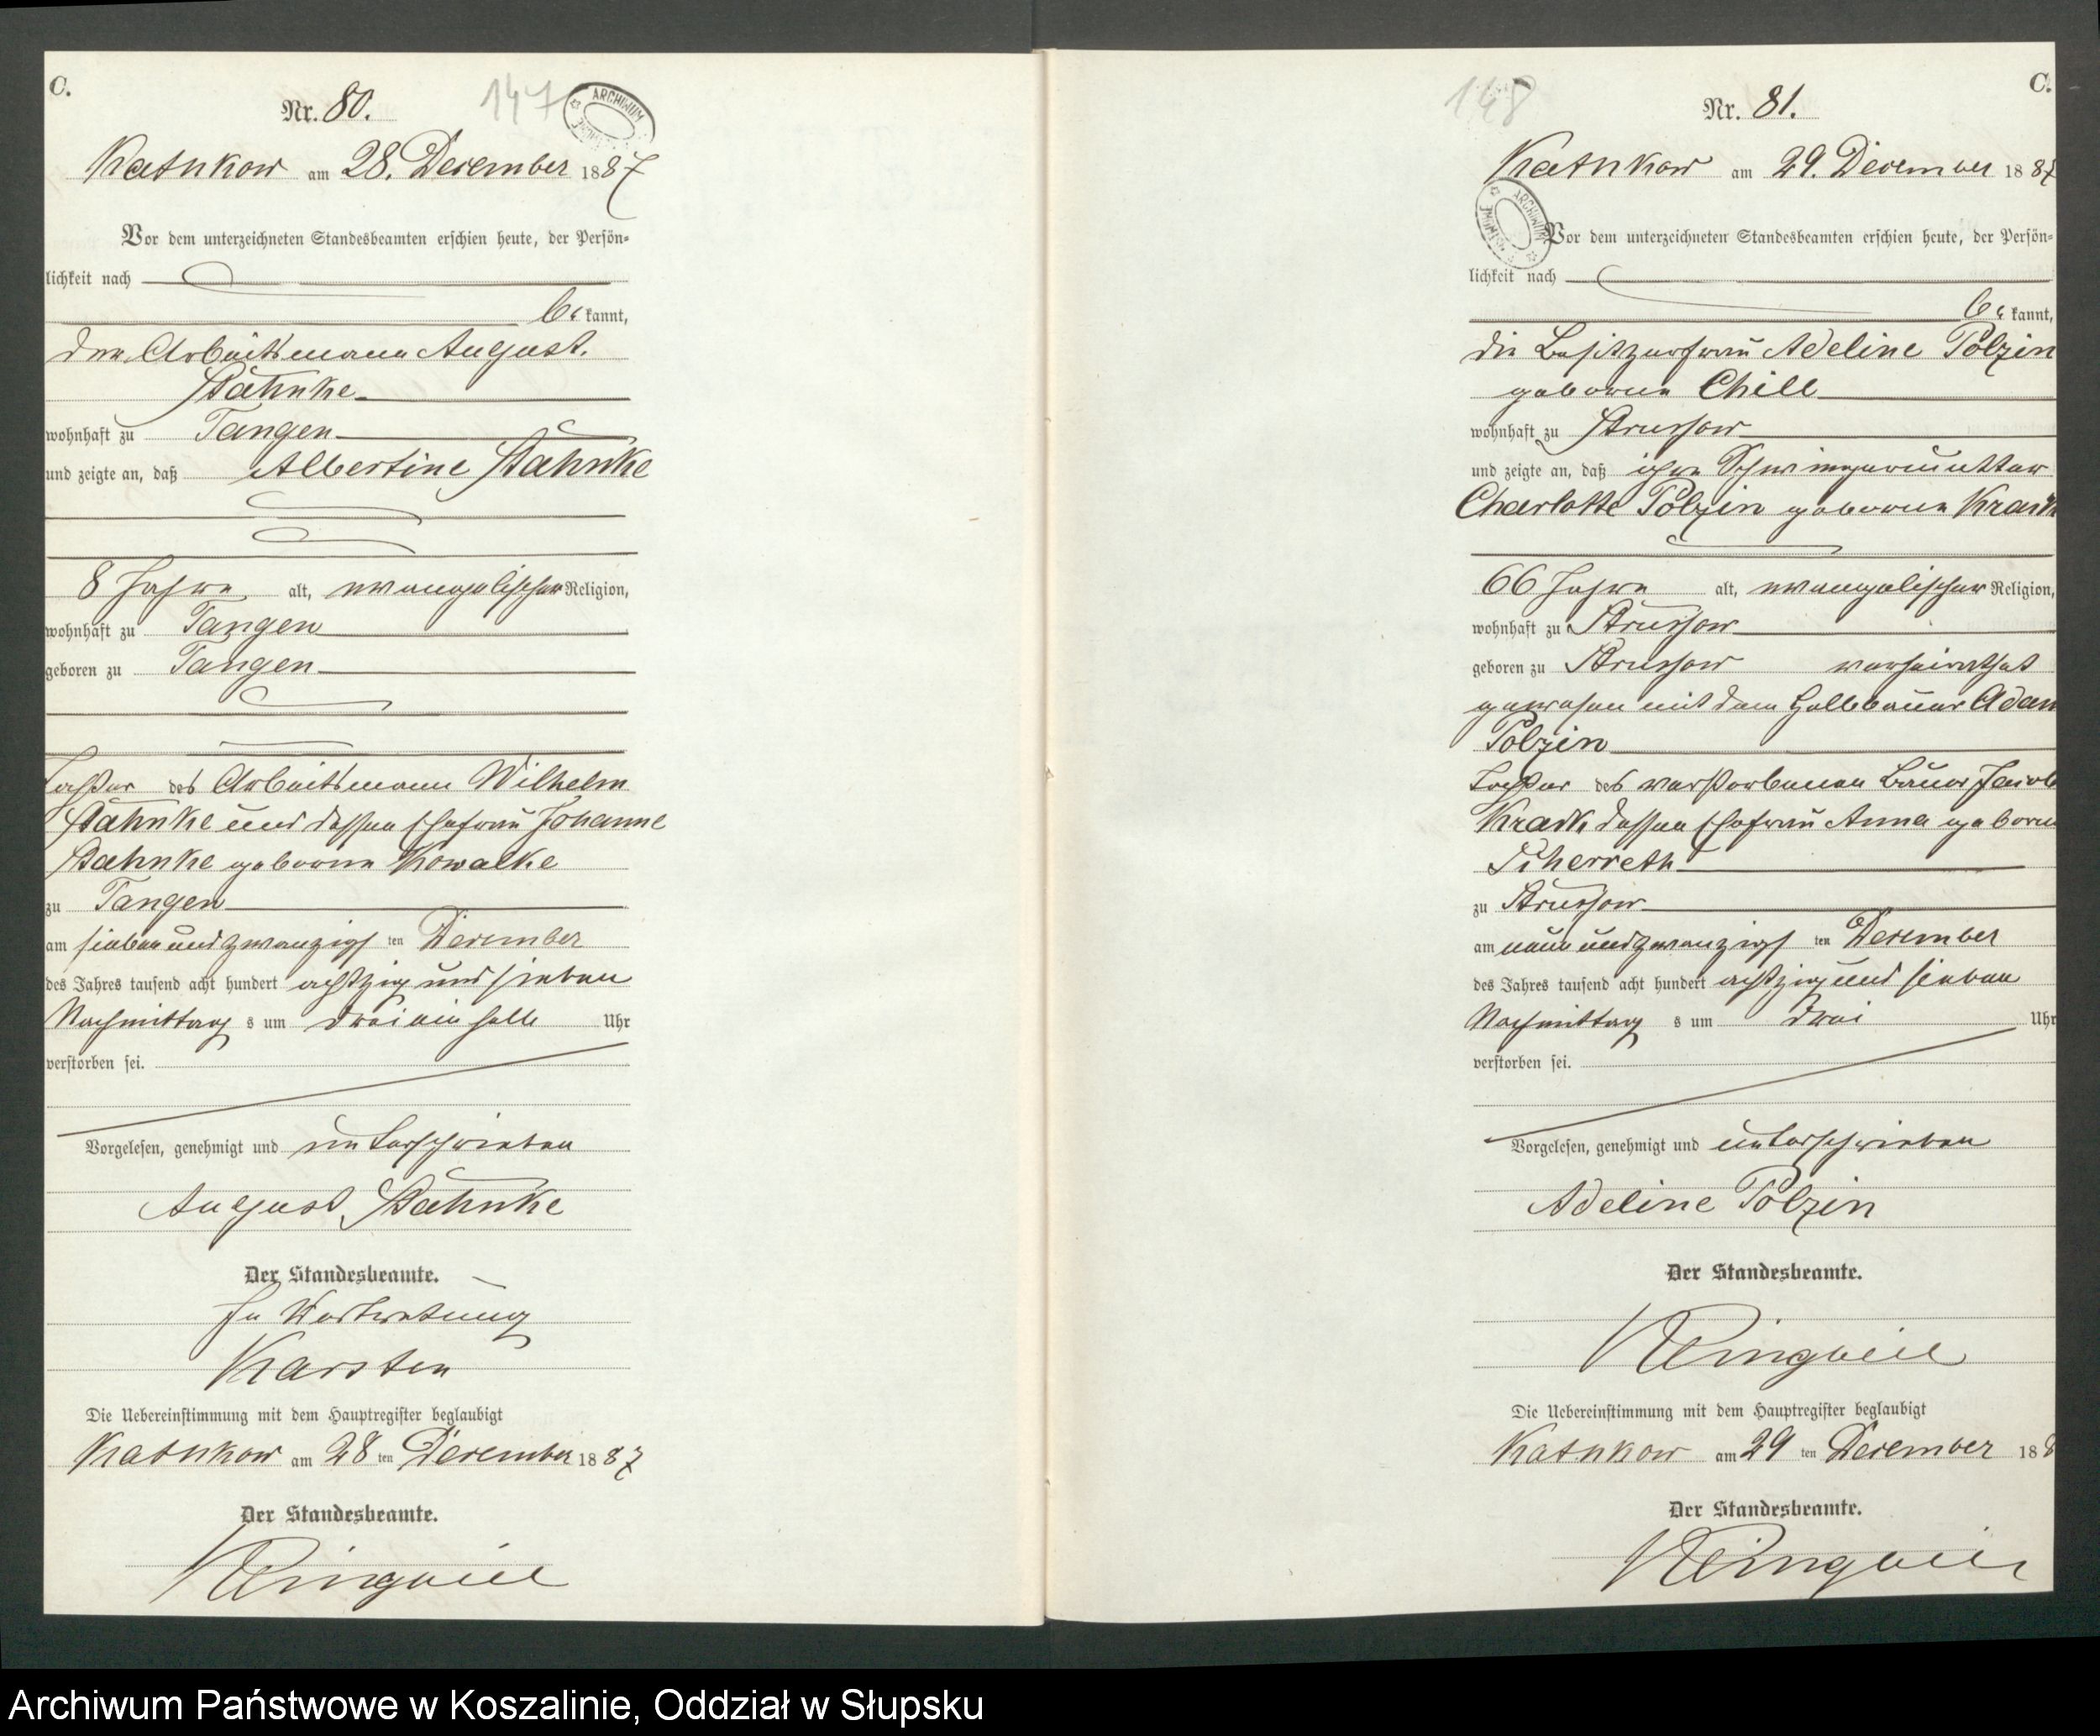 C.
Nr. 80.
147
ARCHIWUM
Katnkow am 28. Dezember 1887
Vor dem unterzeichneten Standesbeamten erschien heute, der Persön=
lichkeit nach
be kannt,
den Arbeitsmann August
Stahnke
wohnhaft zu Tangen
und zeigte an, daß Albertine Stahnke
8 Jahre alt, evangelischer Religion,
wohnhaft zu Tangen
geboren zu Tangen
Tochter des Arbeitsmann Wilhelm
Stahnke und dessen Ehefrau Johanne
Stahnke geborne Kowalke
zu Tangen
am sieben und zwanzigs ten Dezember
des Jahres tausend acht hundert achtzig und sieben
Nachmittag s um drei ein halb Uhr
verstorben sei.
Vorgelesen, genehmigt und unterschrieben
August Stahnke
Der Standesbeamte.
In Vertretung
Karsten
Die Uebereinstimmung mit dem Hauptregister beglaubigt
Katnkow am 28 ten Dezember 1887
Der Standesbeamte.
C.
148
Nr. 81.
Katnkow am 29. Dezember 1887
ARCHIWUM
Vor dem unterzeichneten Standesbeamten erschien heute, der Persön=
lichkeit nach
be kannt,
die Besitzerfrau Adeline Polzin
geborne Chill
wohnhaft zu Strussow
und zeigte an, daß ihre Schwiegermutter
Charlotte Polzin geborne
66 Jahre alt, evangelischer Religion,
wohnhaft zu Strussow
geboren zu Strussow verheirathet
gewesen mit dem Halbbauer Adam
Polzin
Tochter des verstorbenen Bauer Jacob
dessen Ehefrau Anna geborne
zu Strussow
am neun und zwanzigs ten Dezember
des Jahres tausend acht hundert achtzig und sieben
Nachmittag s um drei Uhr
verstorben sei.
Vorgelesen, genehmigt und unterschrieben
Adeline Polzin
Der Standesbeamte.
Die Uebereinstimmung mit dem Hauptregister beglaubigt
Katnkow am 29 ten Dezember 188
Der Standesbeamte.
Archiwum Państwowe w Koszalinie, Oddział w Słupsku